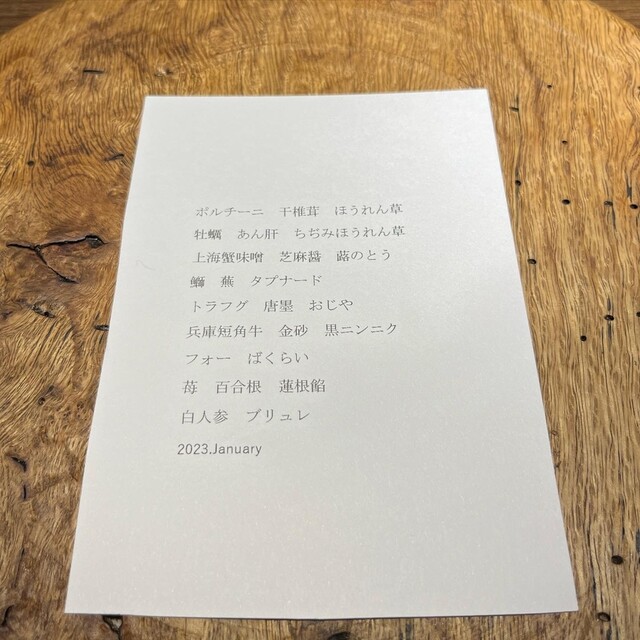 ポルチーニ　干椎茸　ほうれん草
牡蠣　あん肝　ちぢみほうれん草
上海蟹味噌　芝麻醤　蕗のとう
鰤　蕪　タプナード
トラフグ　唐墨　おじや
兵庫短角牛　金砂　黒ニンニク
フォー　ばくらい
苺　百合根　蓮根餡
白人参　ブリュレ
2023.January